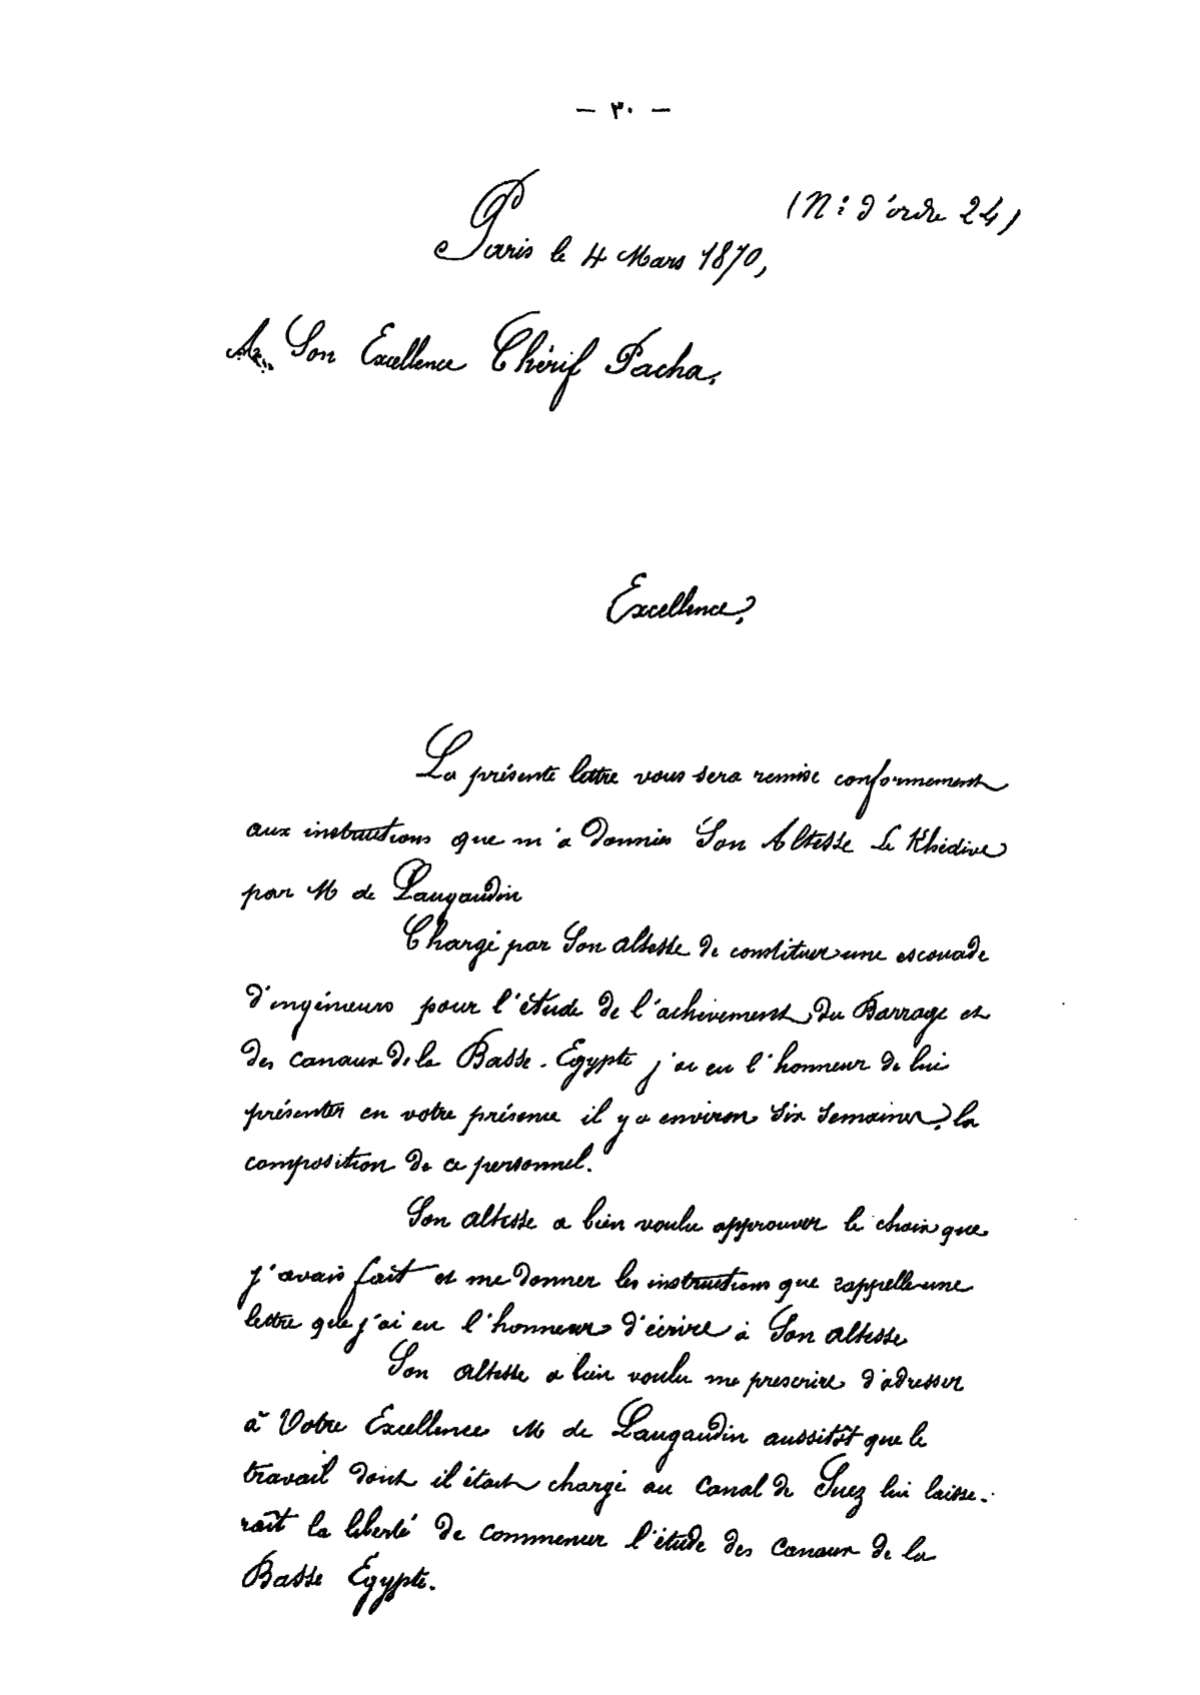 — ٣٠ —
(N: d'ordre 24)
Paris le 4 Mars 1870,
A Son Excellence Chérif Pacha,
Excellence,
La présente lettre vous sera remise conformement
aux instructions que m'a données Son Altesse Le Khédive
par M de Laugaudin
Chargé par Son altesse de constituer une escouade
d'ingénieurs pour l'étude de l'achèvement du Barrage et
des canaux de la Basse-Egypte j'ai eu l'honneur de lui
présenter en votre présence il y a environ six semaines, la
composition de ce personnel.
Son altesse a bien voulu approuver le choix que
j'avais fait et me donner les instructions que rappelle une
lettre que j'ai eu l'honneur d'écrire à Son altesse
Son altesse a bien voulu me prescrire d'adresser
à Votre Excellence M de Laugaudin aussitôt que le
travail dont il était chargé au Canal de Suez lui laisse-
rait la liberté de commencer l'étude des canaux de la
Basse Egypte.